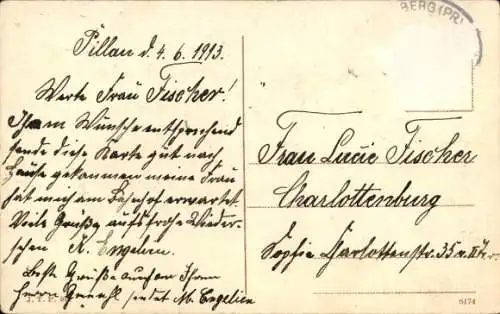 Pillau d. 4. 6. 1913.
Werte Frau Fischer!
Ihrem Wunsche entsprechend
sende diese Karte gut nach
Hause gekommen meine Frau
hat mich am Bahnhof erwartet
Viele Grüße aufs frohe Wieder-
sehen
Beste Grüße auch an Ihnen
Herrn sendet M.
Frau Lucie Fischer
Charlottenburg
Sophie Charlottenstr. 35
BERG (PR)
6174